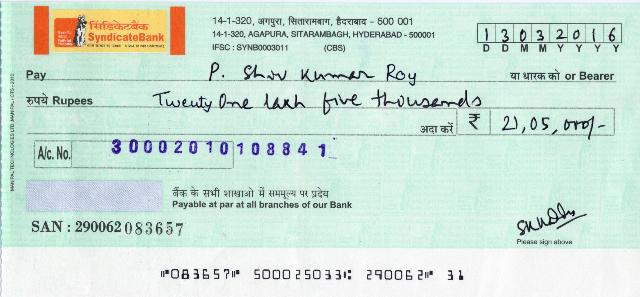 सिंडिकेटबैंक
SyndicateBank
14-1-320, अगपुरा, सितारामबाग, हैदराबाद - 500 001
14-1-320, AGAPURA, SITARAMBAGH, HYDERABAD - 500001
IFSC : SYNB0003011 (CBS)
1 3 0 3 2 0 1 6
D D M M Y Y Y Y
Pay P. Shiv Kumar Roy या धारक को or Bearer
रुपये Rupees Twenty One lakh five thousands
अदा करें ₹ 21,05,000/-
A/c. No. 30002010108841
बैंक के सभी शाखाओं में सममूल्य पर प्रदेय
Payable at par at all branches of our Bank
SAN : 290062 083657
Please sign above
⑈083657⑈ 500025033⑆ 290062⑈ 31